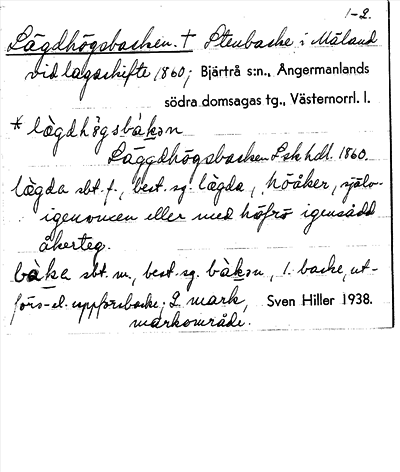 1-2.
Lägdhögsbacken. † Stenbacke i Måland
vid lagaskifte 1860; Bjärtrå s:n., Ångermanlands
södra domsagas tg., Västernorrl. l.
* lägdhögsbàkən
Läggdhögsbacken Lsk hdl. 1860.
lägda sbt. f., best. sg. lägda, höåker, själv-
igenvuxen eller med höfrö igensådd
åkerteg.
bàka sbt. m., best. sg. bàkən, 1. backe, ut-
förs- el. uppförsbacke; 2. mark,
Sven Hiller 1938.
markområde.